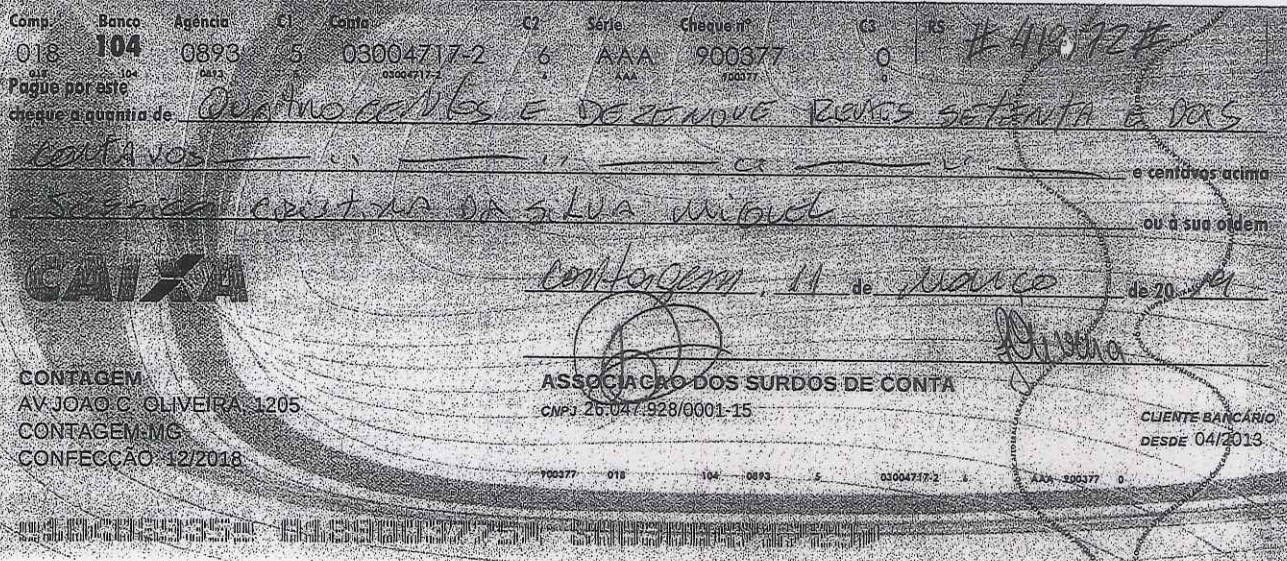 Comp. Banco Agência C1 Conta C2 Série Cheque nº C3 RS
018 104 0893 5 03004717-2 6 AAA 900377 0 # 419,72 #
018 104 0893 5 03004717-2 6 AAA 900377 0
Pague por este
cheque a quantia de Quatrocentos e DEZENOVE REAIS SETENTA E DOIS
CENTAVOS e centavos acima
CRISTINA DA SILVA MIGUEL ou à sua ordem
CAIXA
Contagem, 11 de Março de 2019
CONTAGEM
AV JOAO C. OLIVEIRA, 1205
CONTAGEM-MG
CONFECÇÃO 12/2018
ASSOCIACAO DOS SURDOS DE CONTA
CNPJ 26.047.928/0001-15
CLIENTE BANCÁRIO
DESDE 04/2013
900377 018 104 0893 5 03004717-2 6 AAA 900377 0